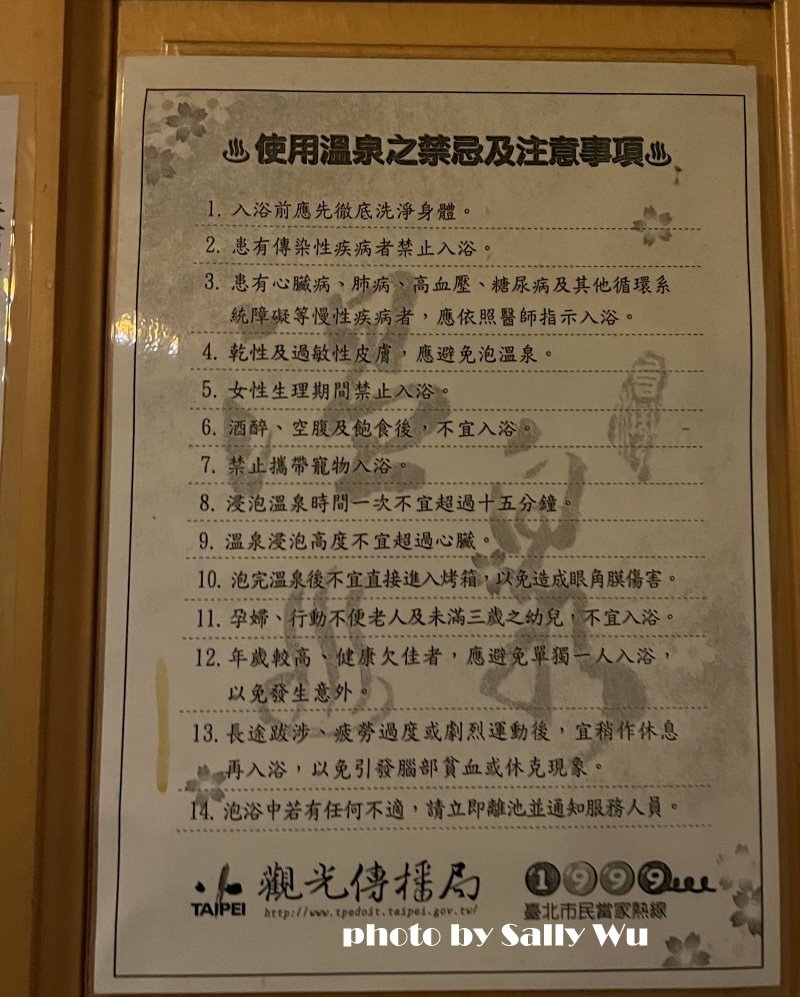 ♨使用溫泉之禁忌及注意事項♨
1. 入浴前應先徹底洗淨身體。
2. 患有傳染性疾病者禁止入浴。
3. 患有心臟病、肺病、高血壓、糖尿病及其他循環系
統障礙等慢性疾病者，應依照醫師指示入浴。
4. 乾性及過敏性皮膚，應避免泡溫泉。
5. 女性生理期間禁止入浴。
6. 酒醉、空腹及飽食後，不宜入浴。
7. 禁止攜帶寵物入浴。
8. 浸泡溫泉時間一次不宜超過十五分鐘。
9. 溫泉浸泡高度不宜超過心臟。
10. 泡完溫泉後不宜直接進入烤箱，以免造成眼角膜傷害。
11. 孕婦、行動不便老人及未滿三歲之幼兒，不宜入浴。
12. 年歲較高、健康欠佳者，應避免單獨一人入浴，
以免發生意外。
13. 長途跋涉、疲勞過度或劇烈運動後，宜稍作休息
再入浴，以免引發腦部貧血或休克現象。
14. 泡浴中若有任何不適，請立即離池並通知服務人員。
TAIPEI 觀光傳播局
http://www.tpedoit.taipei.gov.tw/
1999
臺北市民當家熱線
photo by Sally Wu